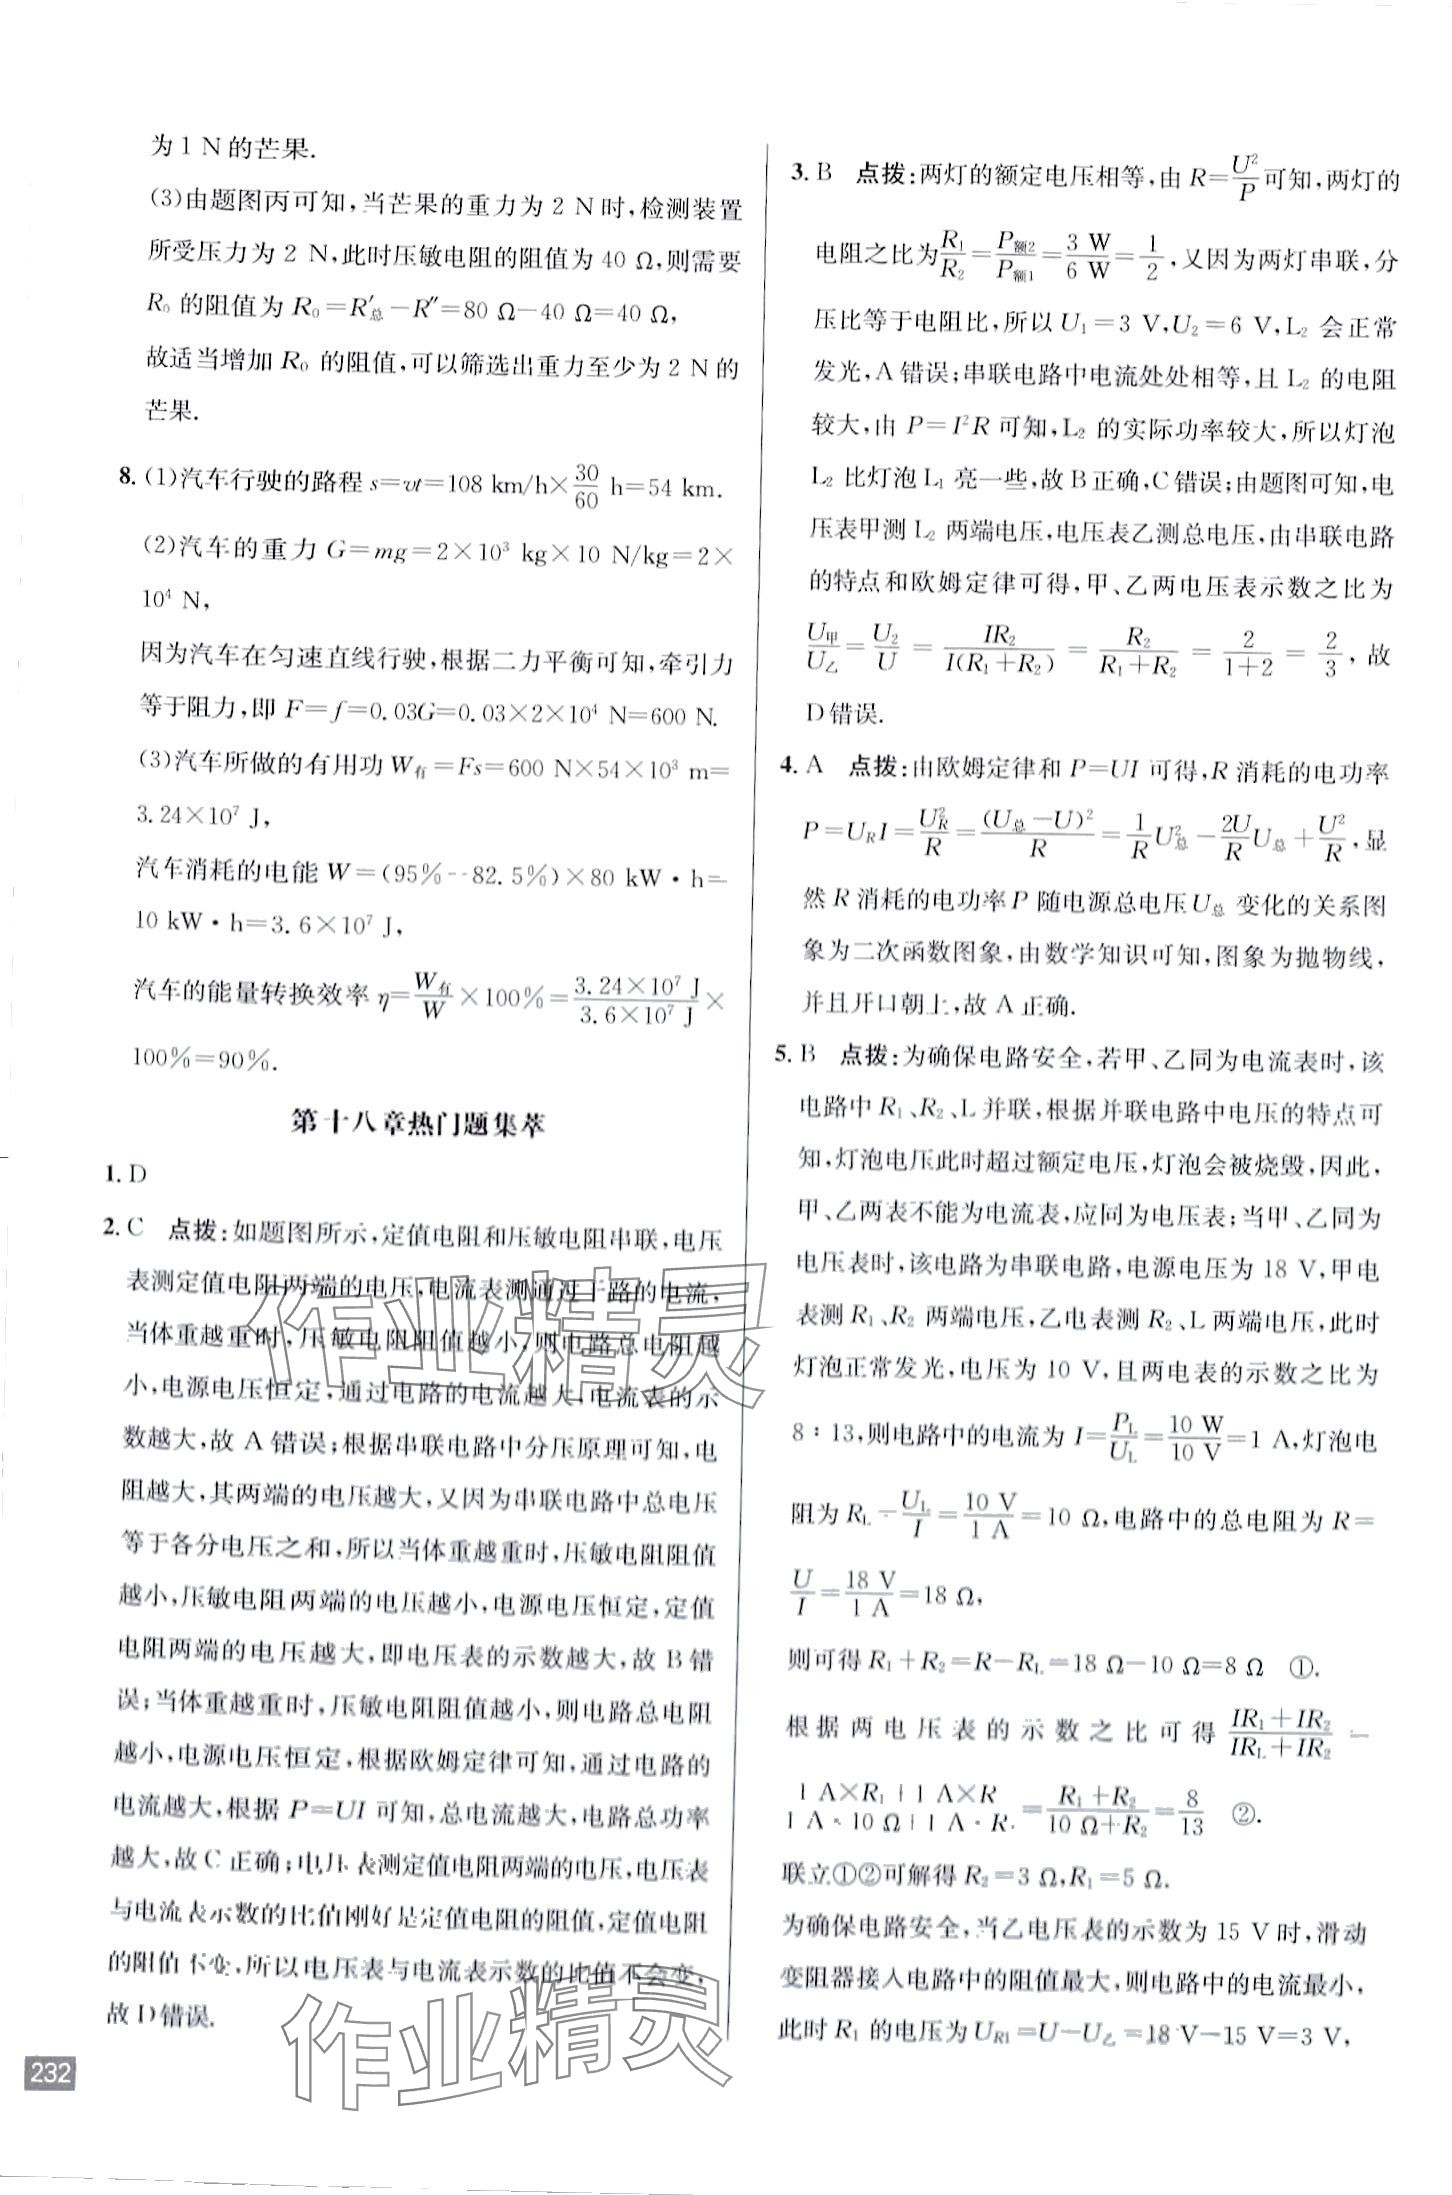 为 1 N 的芒果.
(3)由题图丙可知,当芒果的重力为 2 N 时,检测装置
所受压力为 2 N,此时压敏电阻的阻值为 40 Ω,则需要
R₀ 的阻值为 R₀=R′总−R″=80 Ω−40 Ω=40 Ω,
故适当增加 R₀ 的阻值,可以筛选出重力至少为 2 N 的
芒果.
8. (1)汽车行驶的路程 s=vt=108 km/h×30/60 h=54 km.
(2)汽车的重力 G=mg=2×10³ kg×10 N/kg=2×
10⁴ N,
因为汽车在匀速直线行驶,根据二力平衡可知,牵引力
等于阻力,即 F=f=0.03G=0.03×2×10⁴ N=600 N.
(3)汽车所做的有用功 W有=Fs=600 N×54×10³ m=
3.24×10⁷ J,
汽车消耗的电能 W=(95%−82.5%)×80 kW·h=
10 kW·h=3.6×10⁷ J,
汽车的能量转换效率 η=W有/W×100%=3.24×10⁷ J/3.6×10⁷ J×
100%=90%.
第十八章热门题集萃
1. D
2. C 点拨:如题图所示,定值电阻和压敏电阻串联,电压
表测定值电阻两端的电压,电流表测通过干路的电流,
当体重越重时,压敏电阻阻值越小,则电路总电阻越
小,电源电压恒定,通过电路的电流越大,电流表的示
数越大,故 A 错误;根据串联电路中分压原理可知,电
阻越大,其两端的电压越大,又因为串联电路中总电压
等于各分电压之和,所以当体重越重时,压敏电阻阻值
越小,压敏电阻两端的电压越小,电源电压恒定,定值
电阻两端的电压越大,即电压表的示数越大,故 B 错
误;当体重越重时,压敏电阻阻值越小,则电路总电阻
越小,电源电压恒定,根据欧姆定律可知,通过电路的
电流越大,根据 P=UI 可知,总电流越大,电路总功率
越大,故 C 正确;电压表测定值电阻两端的电压,电压表
与电流表示数的比值刚好是定值电阻的阻值,定值电阻
的阻值不变,所以电压表与电流表示数的比值不会变,
故 D 错误.
232
3. B 点拨:两灯的额定电压相等,由 R=U²/P 可知,两灯的
电阻之比为 R₁/R₂=P额2/P额1=3 W/6 W=1/2,又因为两灯串联,分
压比等于电阻比,所以 U₁=3 V,U₂=6 V,L₂ 会正常
发光,A 错误;串联电路中电流处处相等,且 L₂ 的电阻
较大,由 P=I²R 可知,L₂ 的实际功率较大,所以灯泡
L₂ 比灯泡 L₁ 亮一些,故 B 正确,C 错误;由题图可知,电
压表甲测 L₂ 两端电压,电压表乙测总电压,由串联电路
的特点和欧姆定律可得,甲、乙两电压表示数之比为
U甲/U乙=U₂/U=IR₂/I(R₁+R₂)=R₂/R₁+R₂=2/1+2=2/3,故
D 错误.
4. A 点拨:由欧姆定律和 P=UI 可得,R 消耗的电功率
P=U_R I=U_R²/R=(U总−U)²/R=1/R U总²−2U/R U总+U²/R,显
然 R 消耗的电功率 P 随电源总电压 U总 变化的关系图
象为二次函数图象,由数学知识可知,图象为抛物线,
并且开口朝上,故 A 正确.
5. B 点拨:为确保电路安全,若甲、乙同为电流表时,该
电路中 R₁、R₂、L 并联,根据并联电路中电压的特点可
知,灯泡电压此时超过额定电压,灯泡会被烧毁,因此,
甲、乙两表不能为电流表,应同为电压表;当甲、乙同为
电压表时,该电路为串联电路,电源电压为 18 V,甲电
表测 R₁、R₂ 两端电压,乙电表测 R₂、L 两端电压,此时
灯泡正常发光,电压为 10 V,且两电表的示数之比为
8∶13,则电路中的电流为 I=P_L/U_L=10 W/10 V=1 A,灯泡电
阻为 R_L=U_L/I=10 V/1 A=10 Ω,电路中的总电阻为 R=
U/I=18 V/1 A=18 Ω,
则可得 R₁+R₂=R−R_L=18 Ω−10 Ω=8 Ω ①.
根据两电压表的示数之比可得 IR₁+IR₂/IR_L+IR₂=
1 A×R₁+1 A×R₂/1 A×10 Ω+1 A×R₂=R₁+R₂/10 Ω+R₂=8/13 ②.
联立①②可解得 R₂=3 Ω,R₁=5 Ω.
为确保电路安全,当乙电压表的示数为 15 V 时,滑动
变阻器接入电路中的阻值最大,则电路中的电流最小,
此时 R₁ 的电压为 U_R1=U−U乙=18 V−15 V=3 V,
作业精灵
作业精灵